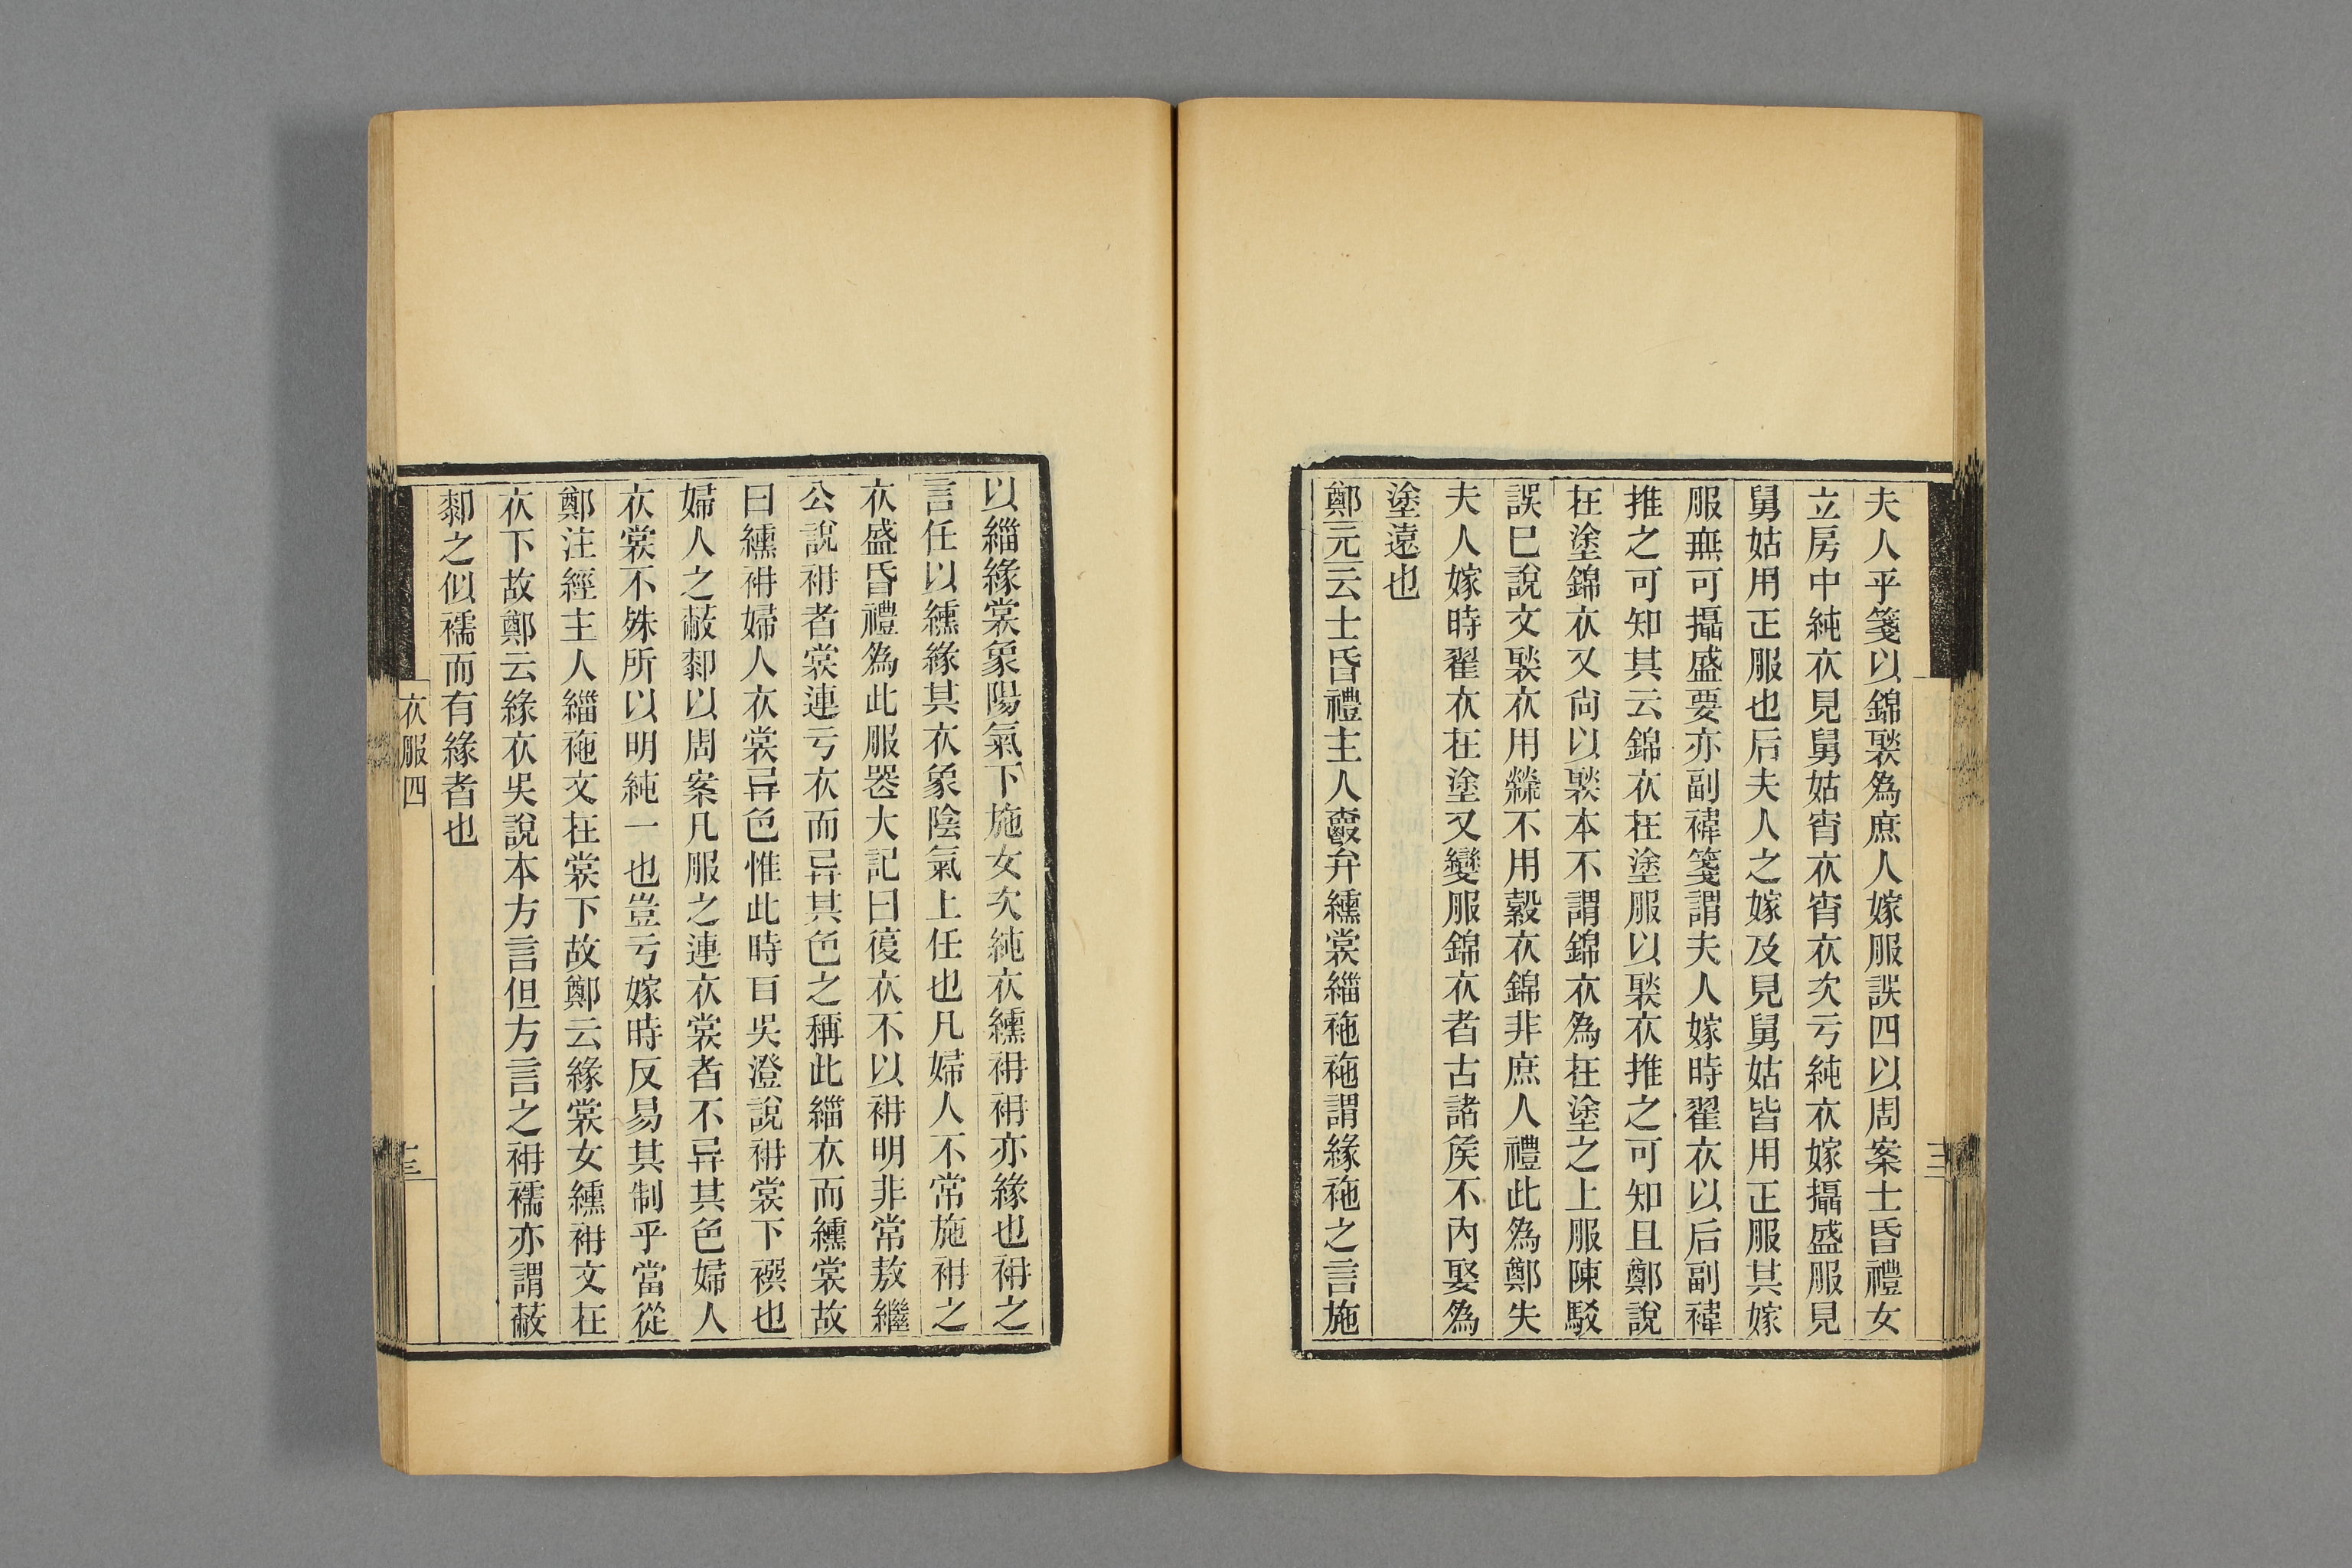 夫人乎箋以錦褧爲庶人嫁服誤四以周案士昏禮女
立房中純衣見舅姑宵衣宵衣次亏純衣嫁攝盛服見
舅姑用正服也后夫人之嫁及見舅姑皆用正服其嫁
服無可攝盛要亦副褘箋謂夫人嫁時翟衣以后副褘
推之可知其云錦衣在塗服以褧衣推之可知且鄭說
在塗錦衣又尙以褧本不謂錦衣爲在塗之上服陳駁
誤巳說文褧衣用檾不用縠衣錦非庶人禮此爲鄭失
夫人嫁時翟衣在塗又變服錦衣者古諸矦不內娶爲
塗遠也
鄭元云士昏禮主人爵弁纁裳緇袘袘謂緣袘之言施
以緇緣裳象陽氣下施女次純衣纁袡袡亦緣也袡之
言任以纁緣其衣象陰氣上任也凡婦人不常施袡之
衣盛昏禮爲此服器大記曰復衣不以袡明非常敖繼
公說袡者裳連亏衣而异其色之稱此緇衣而纁裳故
曰纁袡婦人衣裳异色惟此時百吳澄說袡裳下襈也
婦人之蔽䣛以周案凡服之連衣裳者不异其色婦人
衣裳不殊所以明純一也豈亏嫁時反易其制乎當從
鄭注經主人緇袘文在裳下故鄭云緣裳女纁袡文在
衣下故鄭云緣衣吳說本方言但方言之袡襦亦謂蔽
䣛之似襦而有緣者也
衣服四
十三